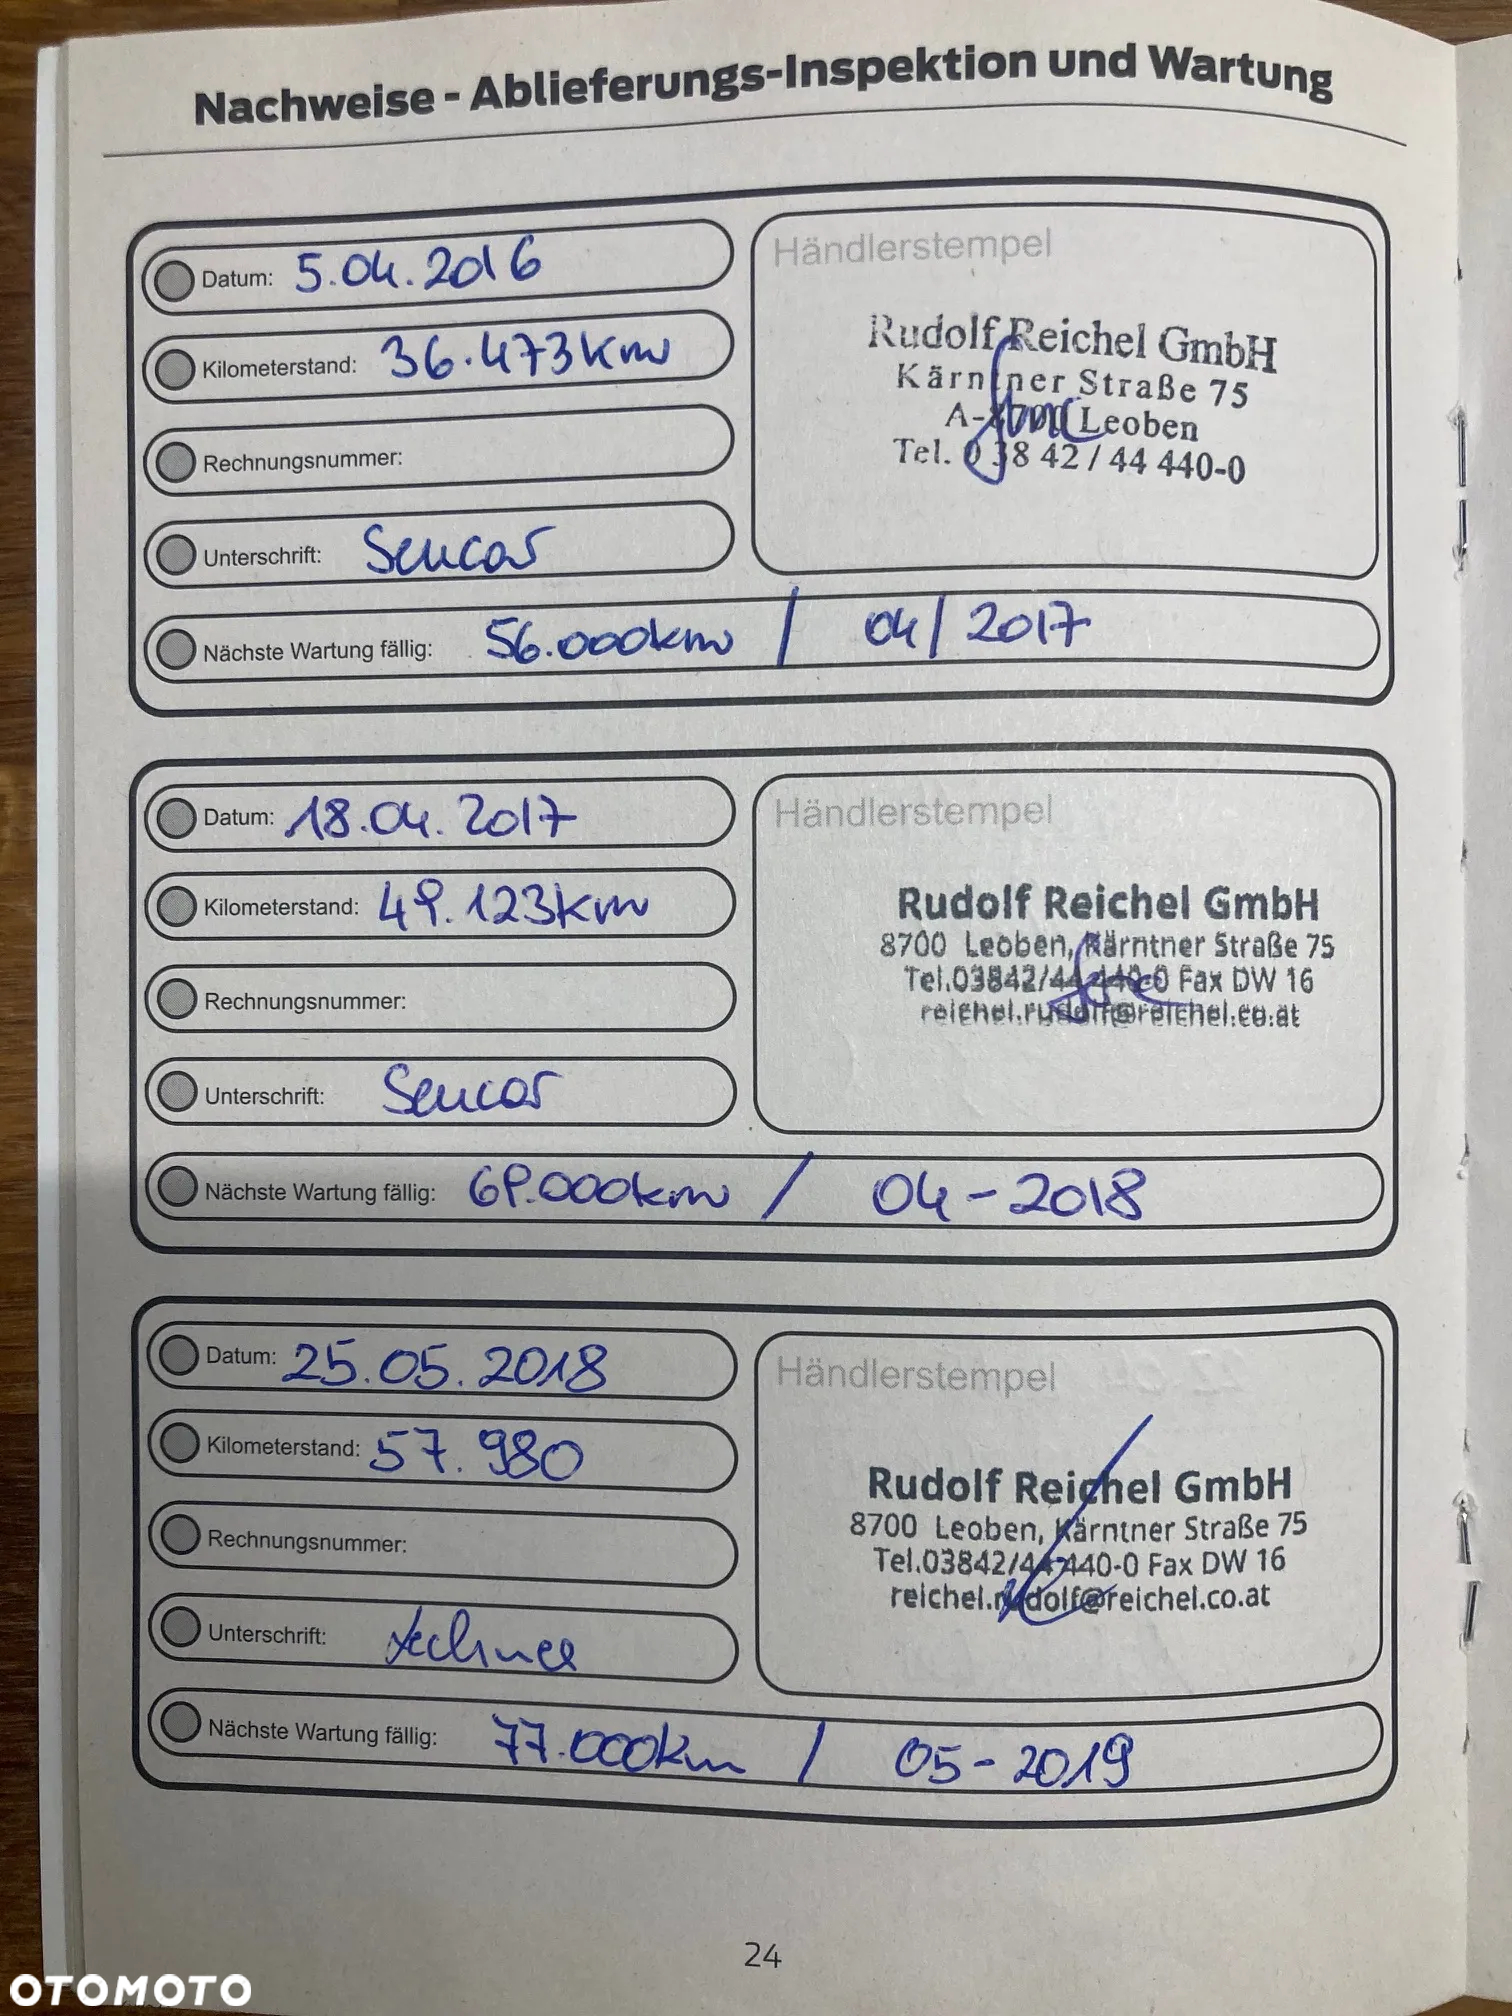 Nachweise - Ablieferungs-Inspektion und Wartung
Datum: 5.04.2016
Kilometerstand: 36.473km
Rechnungsnummer:
Unterschrift:
Nächste Wartung fällig: 56.000km / 04/2017
Händlerstempel
Rudolf Reichel GmbH
Kärntner Straße 75
A-8700 Leoben
Tel. 0 38 42 / 44 440-0
Datum: 18.04.2017
Kilometerstand: 49.123km
Rechnungsnummer:
Unterschrift:
Nächste Wartung fällig: 69.000km / 04-2018
Händlerstempel
Rudolf Reichel GmbH
8700 Leoben, Kärntner Straße 75
Tel.03842/44 440-0 Fax DW 16
reichel.rudolf@reichel.co.at
Datum: 25.05.2018
Kilometerstand: 57.980
Rechnungsnummer:
Unterschrift:
Nächste Wartung fällig: 77.000km / 05-2019
Händlerstempel
Rudolf Reichel GmbH
8700 Leoben, Kärntner Straße 75
Tel.03842/44 440-0 Fax DW 16
reichel.rudolf@reichel.co.at
24
OTOMOTO